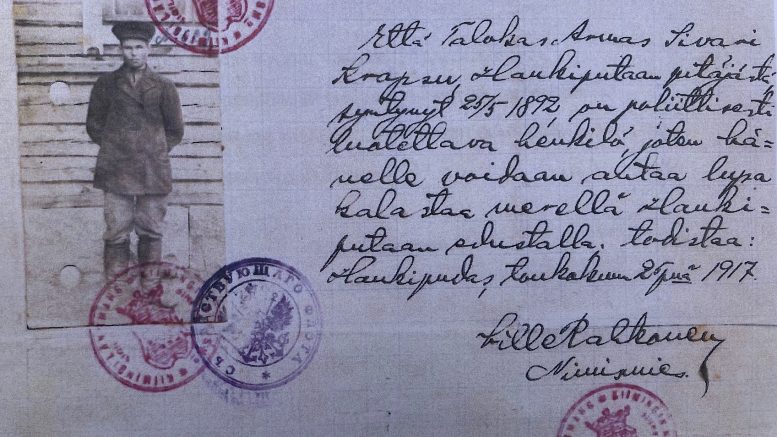 Että Talokas Armas Sivari
Krapsu, Haukiputaan pitäjästä
syntynyt 25/5 1892 on poliittisesti
luotettava henkilö, joten hä=
nelle voidaan antaa lupa
kalastaa merellä Hauki=
putaan edustalla. todistaa:
Haukipudas, toukokuun 25 pnä 1917.
Ville Ralkonen
Nimismies.